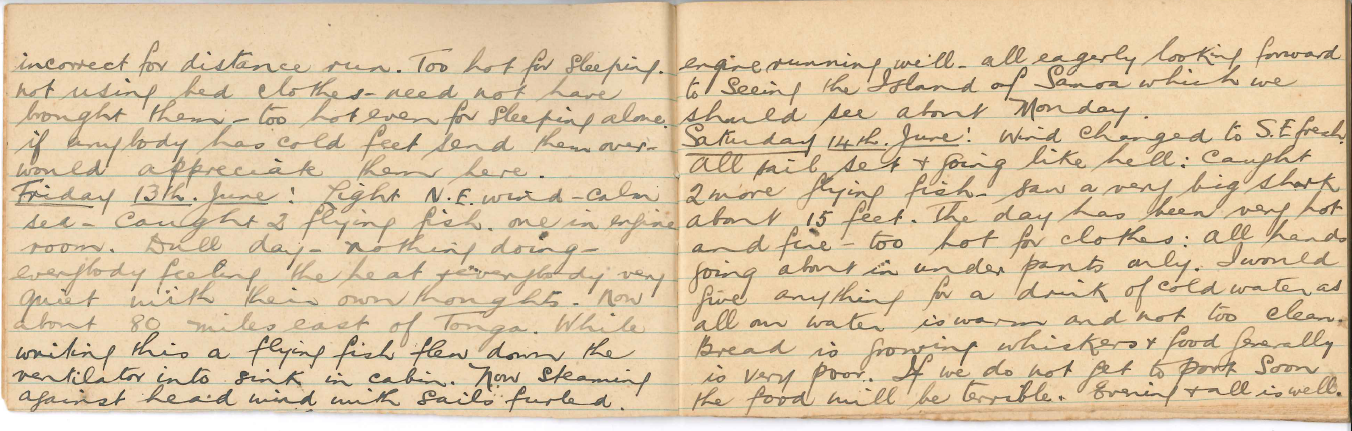 incorrect for distance run. Too hot for sleeping.
not using bed clothes - need not have
brought them - too hot even for sleeping alone.
if anybody has cold feet send them over -
would appreciate them here.
Friday 13th. June! Light N.E. wind - calm
sea - caught 2 flying fish. one in engine
room. Dull day - nothing doing -
everybody feeling the heat & everybody very
quiet with their own thoughts. Now
about 80 miles east of Tonga. While
writing this a flying fish flew down the
ventilator into sink in cabin. Now steaming
against head wind with sails furled.
engine running well - all eagerly looking forward
to seeing the Island of Samoa which we
should see about Monday.
Saturday 14th. June! Wind changed to S.E fresh.
All sail set & going like hell: Caught
2 more flying fish - saw a very big shark
about 15 feet. The day has been very hot
and fine - too hot for clothes: all hands
going about in under pants only. I would
give anything for a drink of cold water as
all our water is warm and not too clean.
Bread is growing whiskers & food generally
is very poor. If we do not get to port soon
the food will be terrible. Evening & all is well.